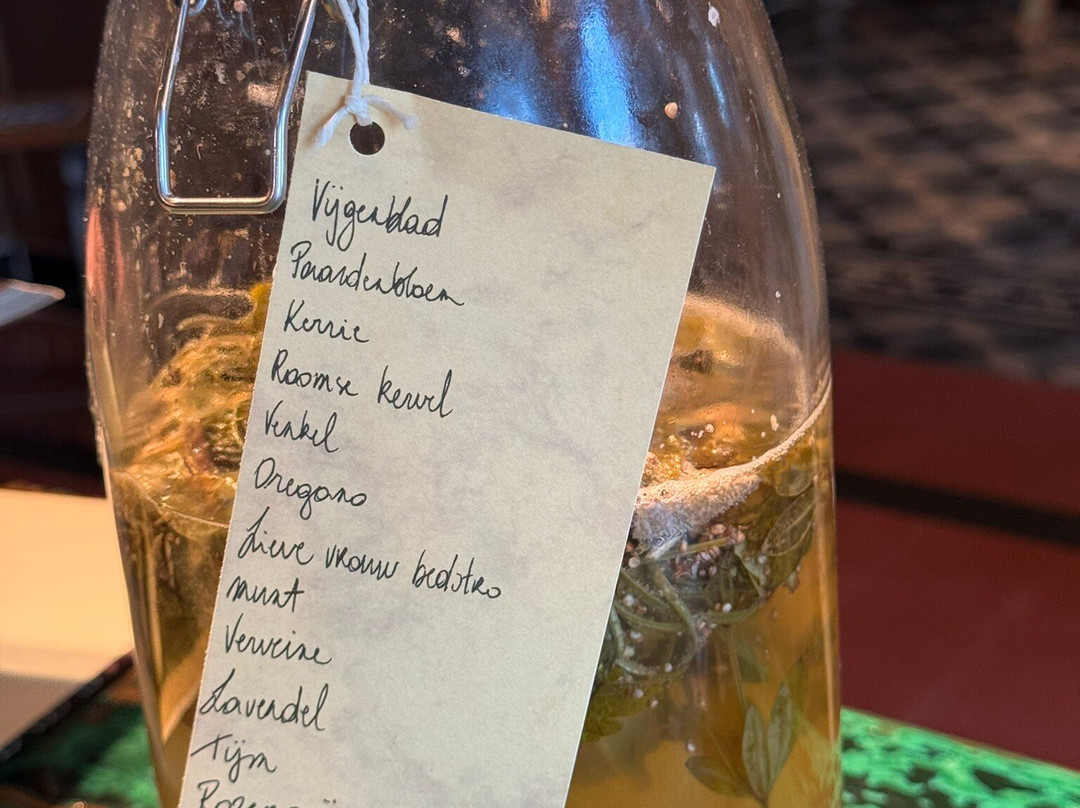 Vijgenblad
Paardenbloem
Kerrie
Roomse kervel
Venkel
Oregano
Lieve vrouw bedstro
munt
Verveine
Lavendel
Tijm